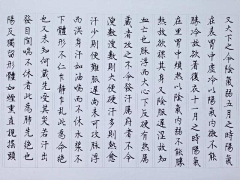 又大下之令陰氣弱五月之時陽氣
在表胃中虛冷以陽氣內微不能
勝冷故欲著復衣十一月之時陽氣
在裏胃中煩熱以陰氣內弱不能勝
熱故欲裸其身又陰脈遲澀故知
血亡也脈浮而大心下反硬有熱屬
藏者攻之不令發汗屬府者不令
溲數溲數則大便硬汗多則熱愈
汗少則便難脈遲尚未可攻脈浮
而洪身汗如油喘而不休水漿不
下體形不仁乍靜乍亂此為命絕
也又未知何藏先受其災若汗出
發潤喘不休者此為肺先絕也
陽反獨留形體如煙熏直視搖頭